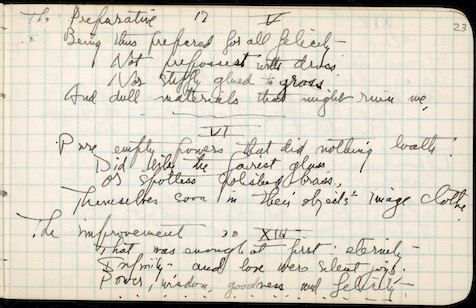 The Preparative 12 V 23
Being thus prepared for all felicity
Not prepossest with dross
Nor stiffly glued to gross
And dull materials that might ruin me,
VI
Pure empty powers that did nothing loath
Did like the fairest glass
Or spotless polished brass,
Themselves soon in their objects' image clothe.
The improvement 20 XIII
That was enough at first eternity
Infinity and love were silent joys.
Power, wisdom, goodness and felicity